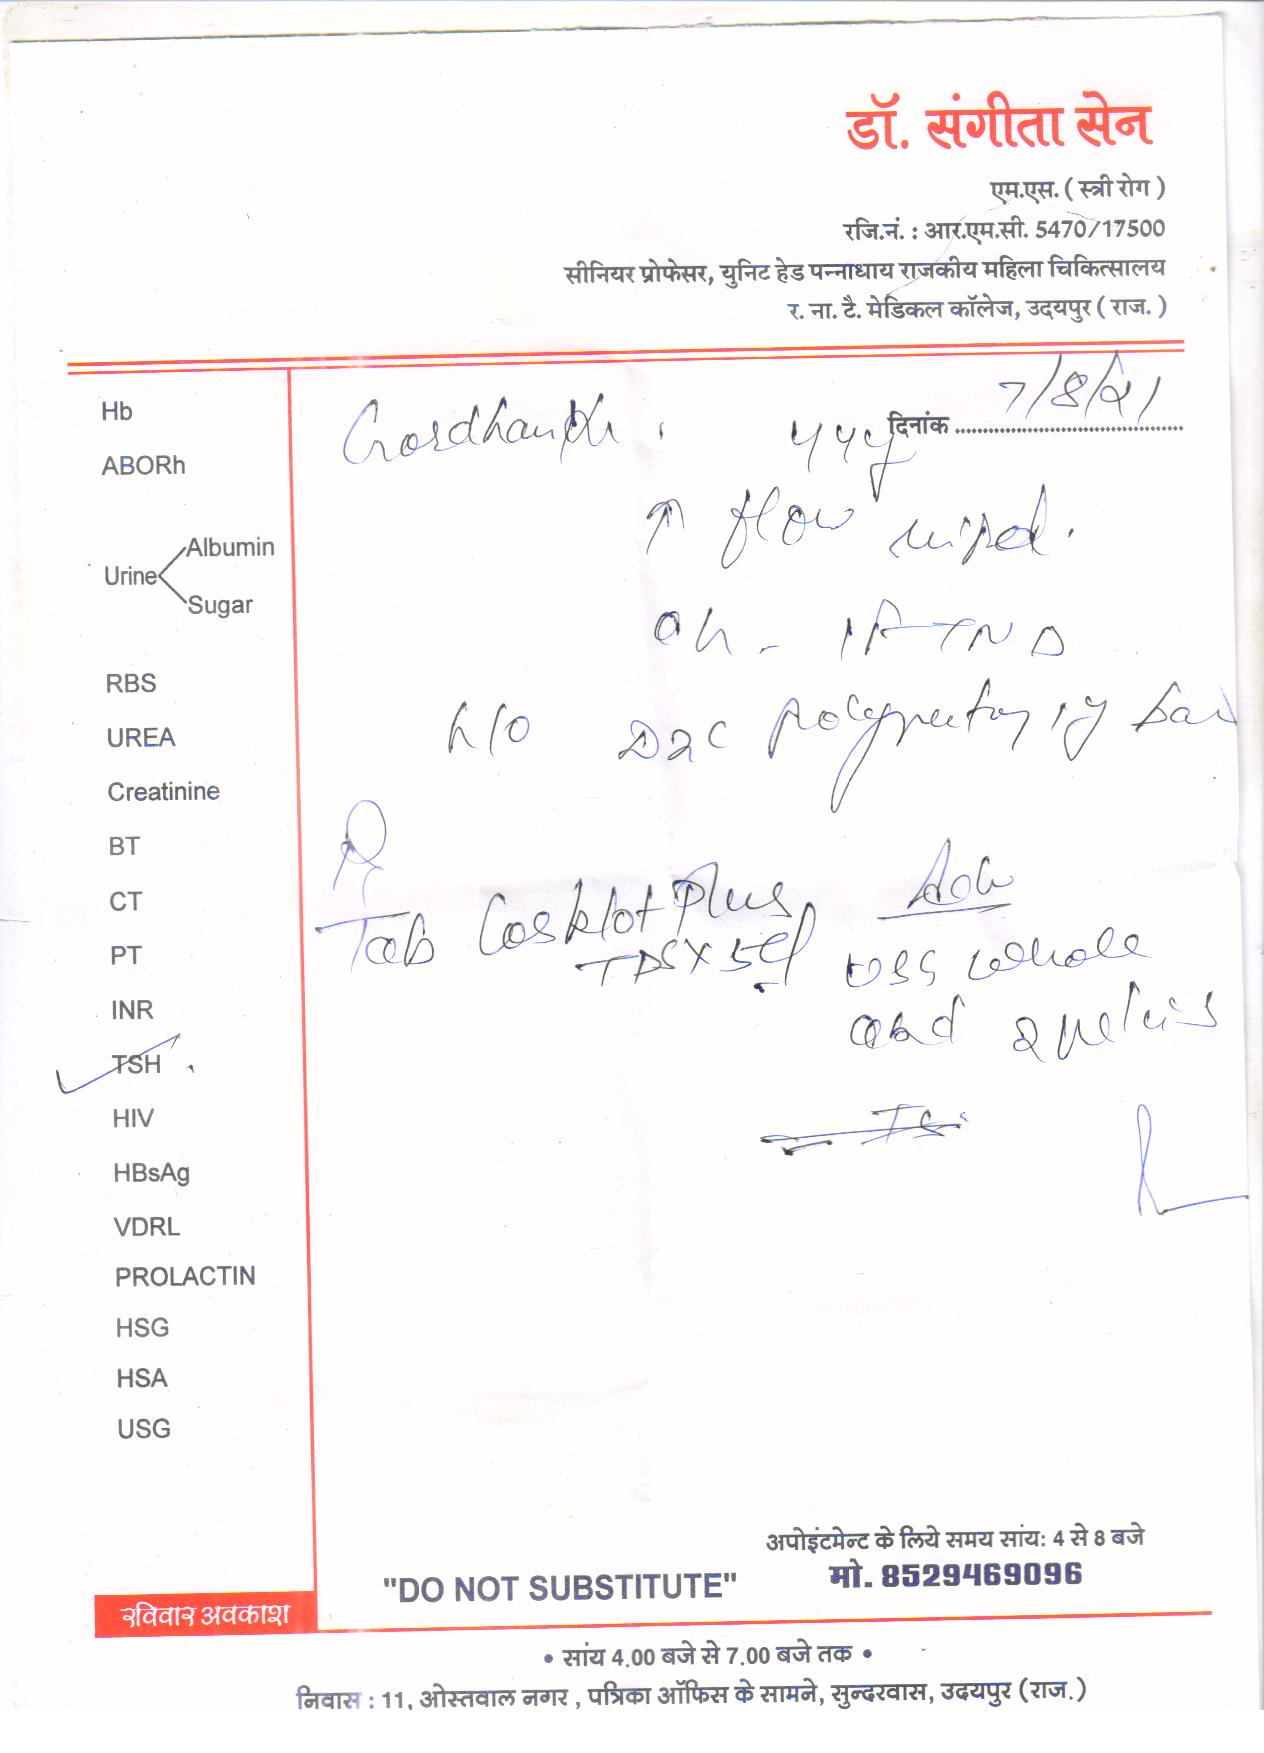 डॉ. संगीता सेन
एम.एस. ( स्त्री रोग )
रजि.नं. : आर.एम.सी. 5470/17500
सीनियर प्रोफेसर, युनिट हेड पन्नाधाय राजकीय महिला चिकित्सालय
र. ना. टै. मेडिकल कॉलेज, उदयपुर ( राज. )
दिनांक 7/8/21
44y
↑ flow
h/o D&C
Tab Plus
TDS X 5d
Adv
USG whole
abd
Hb
ABORh
Urine
Albumin
Sugar
RBS
UREA
Creatinine
BT
CT
PT
INR
TSH
HIV
HBsAg
VDRL
PROLACTIN
HSG
HSA
USG
रविवार अवकाश
"DO NOT SUBSTITUTE"
अपोइंटमेन्ट के लिये समय सांय: 4 से 8 बजे
मो. 8529469096
• सांय 4.00 बजे से 7.00 बजे तक •
निवास : 11, ओस्तवाल नगर , पत्रिका ऑफिस के सामने, सुन्दरवास, उदयपुर (राज.)